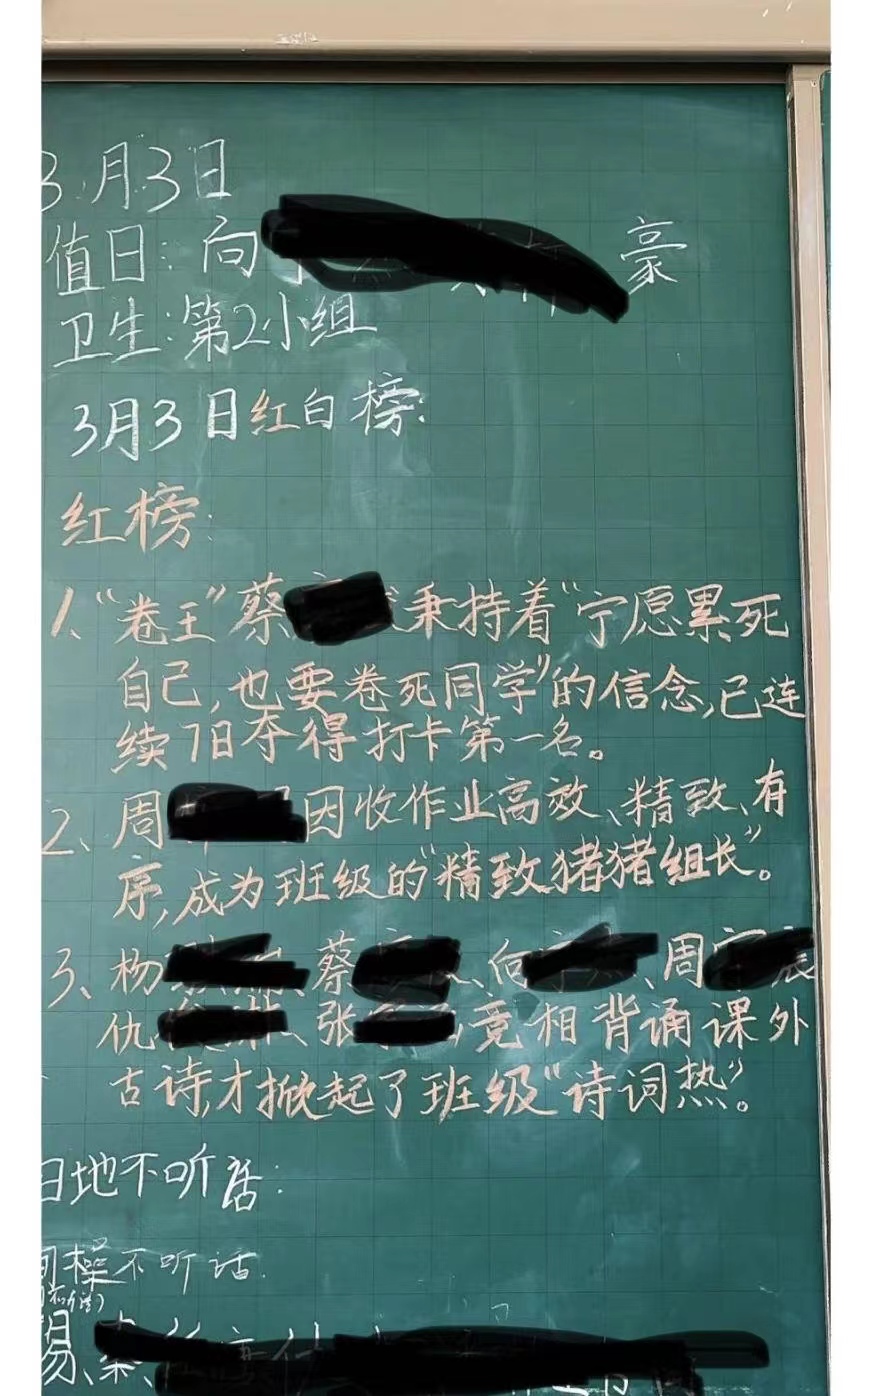 3月3日
值日:向 豪
卫生:第2小组
3月3日红白榜:
红榜:
1、“卷王”蔡 秉持着“宁愿累死
自己,也要卷死同学”的信念,已连
续7日夺得打卡第一名。
2、周 因收作业高效、精致、有
序,成为班级的“精致猪猪组长”。
3、杨 、蔡 、向 、周 辰
仇 、张 竞相背诵课外
古诗,才掀起了班级“诗词热”。
地不听话:
操不听话